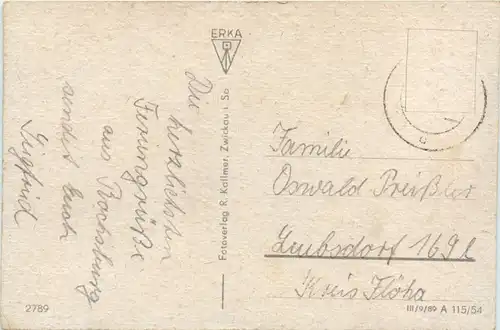 Die herzlichsten
Feriengrüße
aus Rochsburg
sendet Euch
Siegfried
ERKA
Fotoverlag R. Kallmer, Zwickau i. Sa
Familie
Oswald Preißler
Leubsdorf 169 l
Kreis Flöha
2789
III/9/89 A 115/54